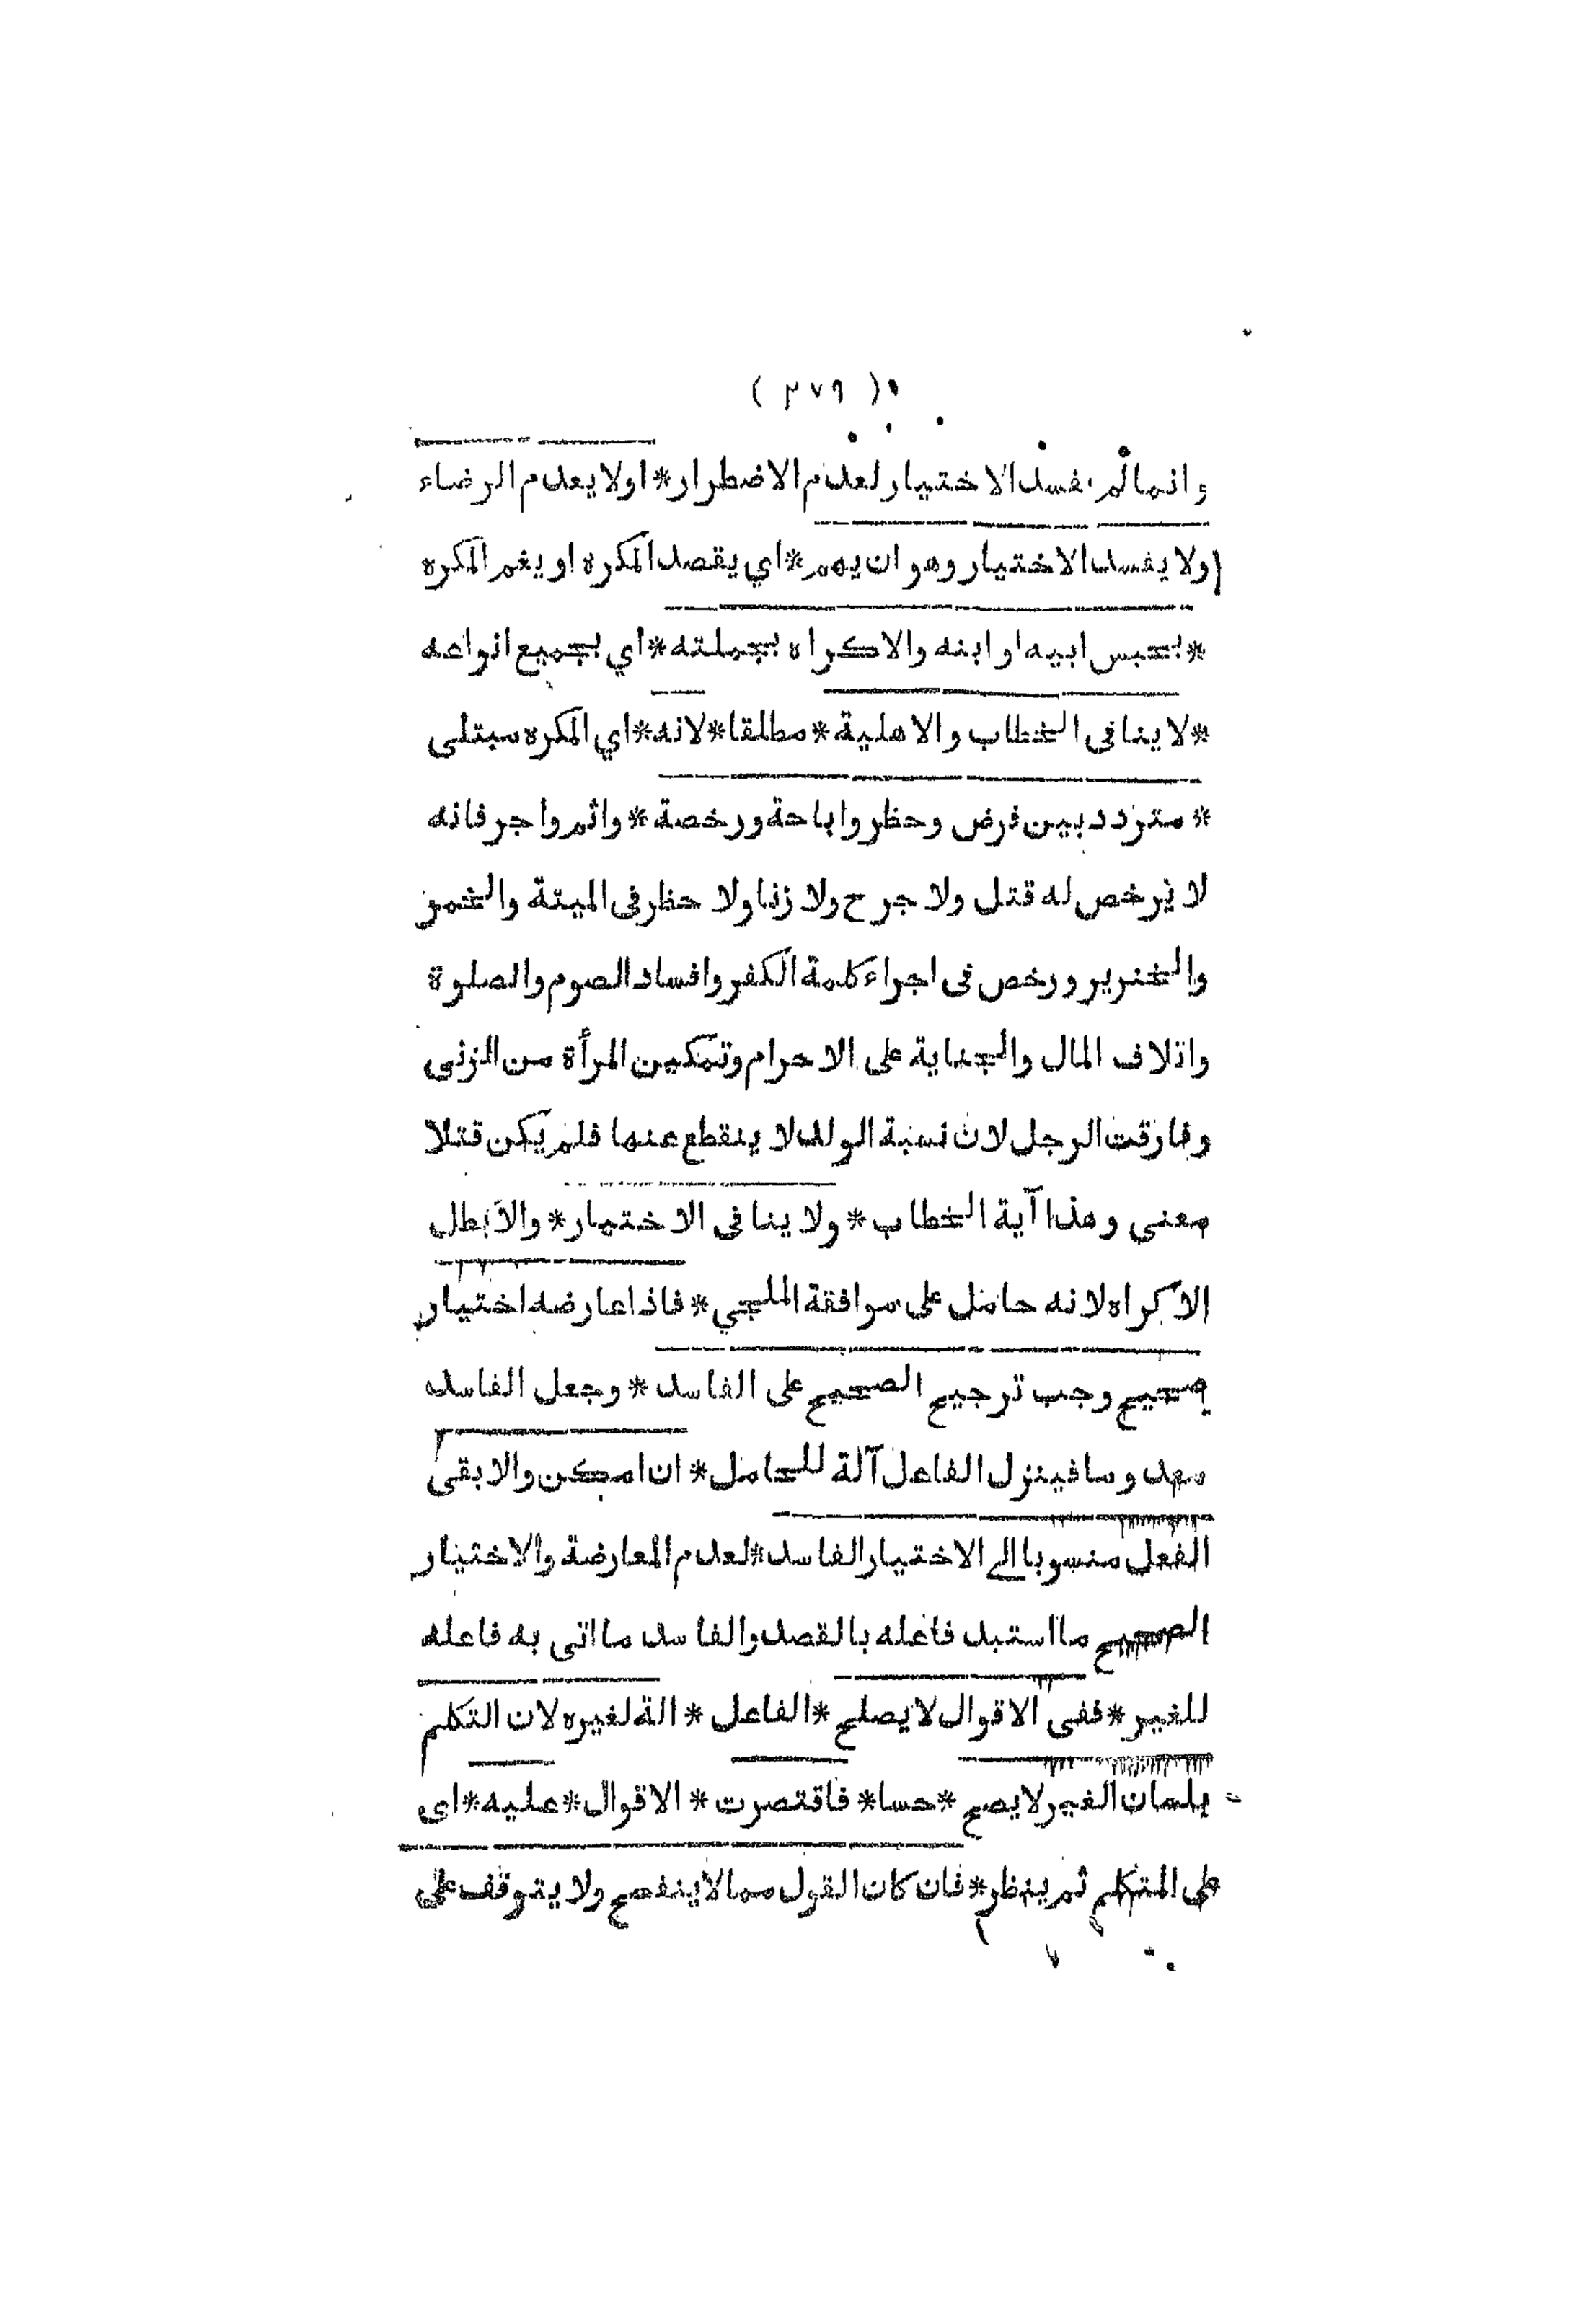 ( ٣٧٩ )
وانما لم يفسد الاختيار لعدم الاضطرار * اولا يعدم الرضاء
ولا يفسد الاختيار وهو ان يهم * اي يقصد المكره او يغم المكره
* بحبس ابيه او ابنه والاكراه بجملته * اي بجميع انواعه
* لا ينافى الخطاب والاهلية * مطلقا * لانه * اي المكره مبتلى
* متردد بين فرض وحظر واباحة ورخصة * واثم واجر فانه
لا يرخص له قتل ولا جرح ولا زنا ولا حظر فى الميتة والخمر
والخنرير ورخص فى اجراء كلمة الكفر وافساد الصوم والصلوة
واتلاف المال والجناية على الاحرام وتمكين المرأة من الزنى
وفارقت الرجل لان نسبة الولد لا ينقطع عنها فلم يكن قتلا
معنى وهذا آية الخطاب * ولا ينافى الاختيار * والا بطل
الاكراه لانه حامل على موافقة الملجي * فاذا عارضه اختيار
صحيح وجب ترجيح الصحيح على الفاسد * وجعل الفاسد
معدوما فينزل الفاعل آلة للحامل * ان امكن والا بقى
الفعل منسوبا الى الاختيار الفاسد * لعدم المعارضة والاختيار
الصحيح ما استبد فاعله بالقصد والفاسد ما اتى به فاعله
للغير * ففى الاقوال لا يصلح * الفاعل * الة لغيره لان التكلم
بلسان الغير لا يصح * حسا * فاقتصرت * الاقوال * عليه * اى
على المتكلم ثم ينظر * فان كان القول مما لا ينفسخ ولا يتوقف على